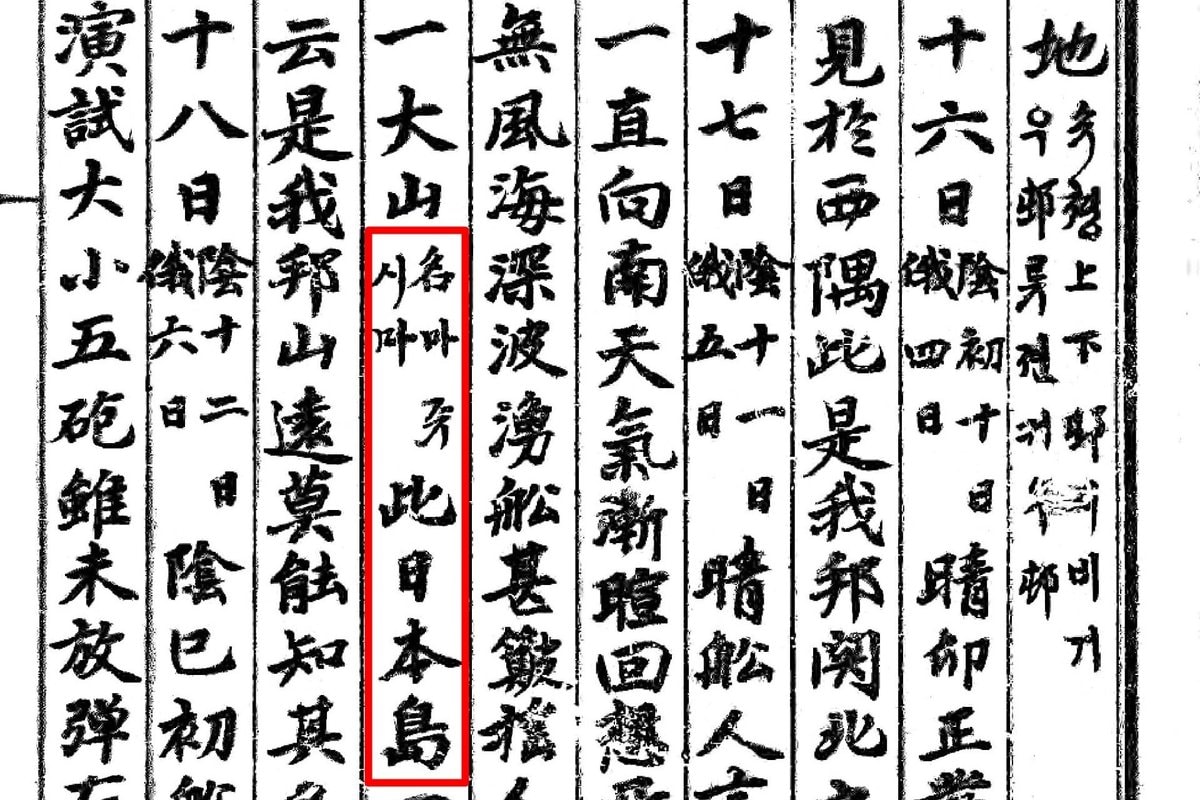 地수청上下邨비거우邨
十六日陰初十日俄四日晴卯正
見於西隅此是我邦関北
十七日陰十一日俄五日晴舩人言
一直向南天氣漸暄回想
無風海深波湧舩甚簸揺人
一大山名마쥬시마此日本島
云是我邦山遠莫能知其名
十八日陰十二日俄六日陰巳初
演試大小五砲雖未放弾在